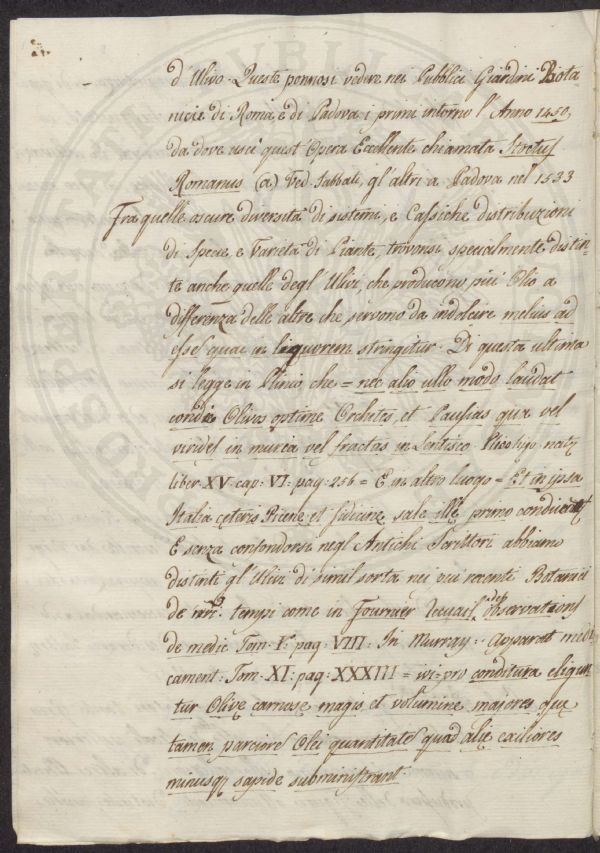 d'Ulivo. Queste ponnosi vedere nei Pubblici Giardini Bota
nici e di Roma, e di Padova i primi intorno l'Anno 1450,
da dove uscì quest'Opera Eccellente chiamata Hortus
Romanus (a) Ved. Sabbati, gl'altri a Padova nel 1533
Fra quelle oscure diversità di sistemi, e Classiche distribuzioni
di Specie e Varietà di Piante, trovonsi specialmente distin=
te anche quelle degl'Ulivi, che producono più Olio a
differenza delle altre che servono da indolcire melius ad
esse quae in liquorem stringitur. Di questa ultima
si legge in Plinio, che = nec alio ullo modo laudat
condi Olivas optime Orchites, et Pausias quae vel
virides in muria vel fractas in Lentisco
liber XV. cap. VI. pag. 256 = E in altro luogo = Et in ipsa
Italia ceteris Picene et Sidicine sale ille primo
E senza confondersi negl'Antichi Scrittori abbiamo
distinti gl'Ulivi di simil sorta nei più recenti Botanici
de nri. tempi come in Fournier recueil des observations
de medic Tom. I.º pag. VIII. In Murray. Apparat medi
cament. Tom. XI. pag. XXXIII = ivi = pro conditura eligun
tur Olive carnose magis et volumine majores que
tamen parciore Olei quantitate quad alie exiliores
minusq sapide subministrant